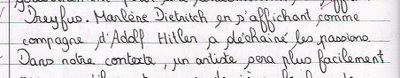 Dreyfus. Marlène Dietritch en s'affichant comme
compagne d'Adolf Hitler a déchaîné les passions.
Dans notre contexte, un artiste sera plus facilement